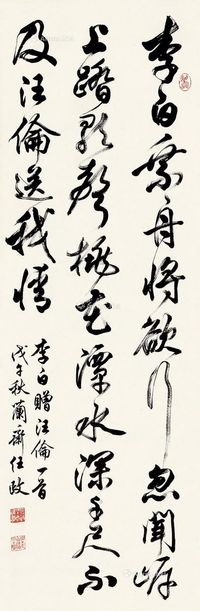 李白乘舟將欲行忽聞岸
上踏歌聲桃花潭水深千尺不
及汪倫送我情
李白贈汪倫一首
戊午秋蘭齋任政